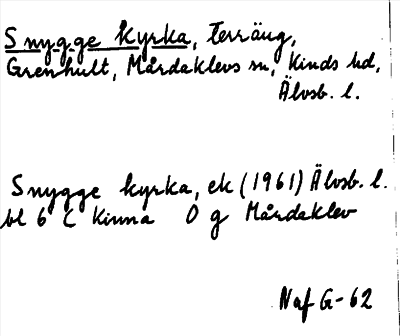 Snygge kyrka, terräng,
Grenhult, Mårdaklevs sn, Kinds hd,
Älvsb. l.
Snygge kyrka, ek (1961) Älvsb. l.
bl 6 C Kinna 0 g Mårdaklev
Naf G-62